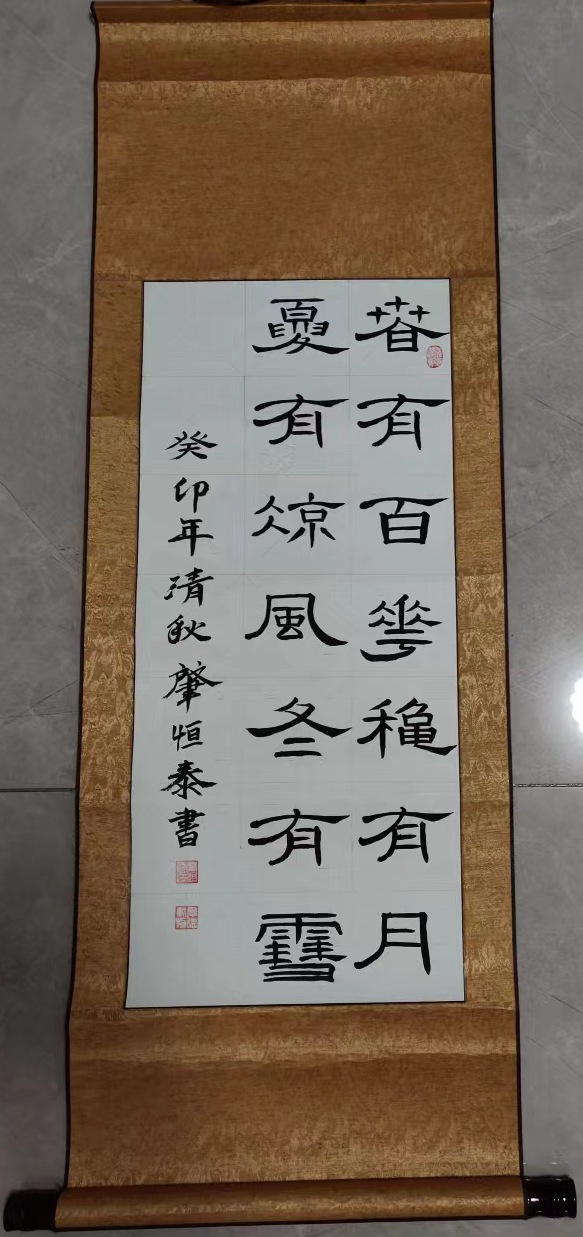 春有百花秋有月
夏有凉風冬有雪
癸卯年清秋肇恒泰書